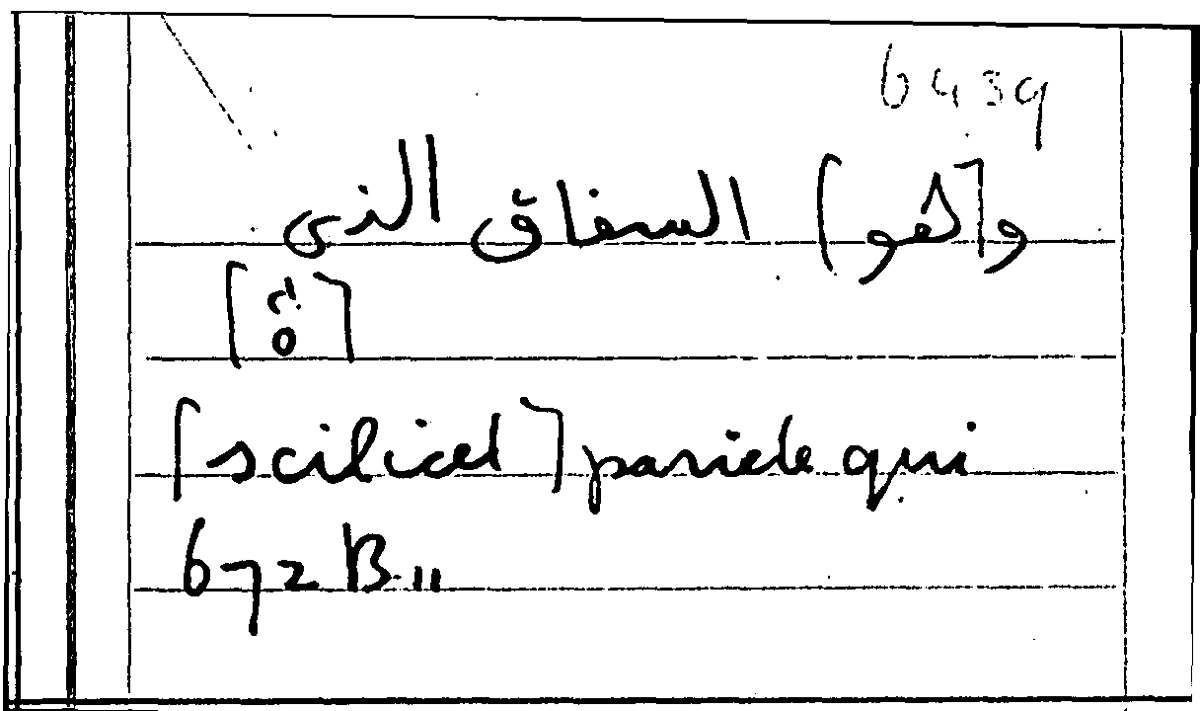 6439
و[هو] السفاق الذى
[scilicet] pariete qui
672 B 11